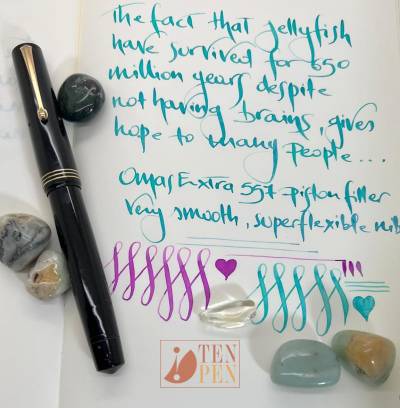 The fact that jellyfish
have survived for 650
million years despite
not having brains, gives
hope to many people...
Omas Extra 557 piston filler
Very smooth, superflexible nib
TEN
PEN